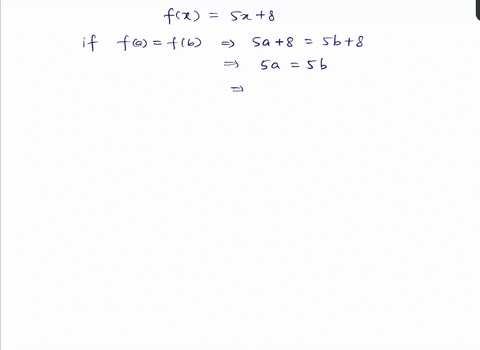 f(x) = 5x + 8
if f(a) = f(b) ⇒ 5a + 8 = 5b + 8
⇒ 5a = 5b
⇒